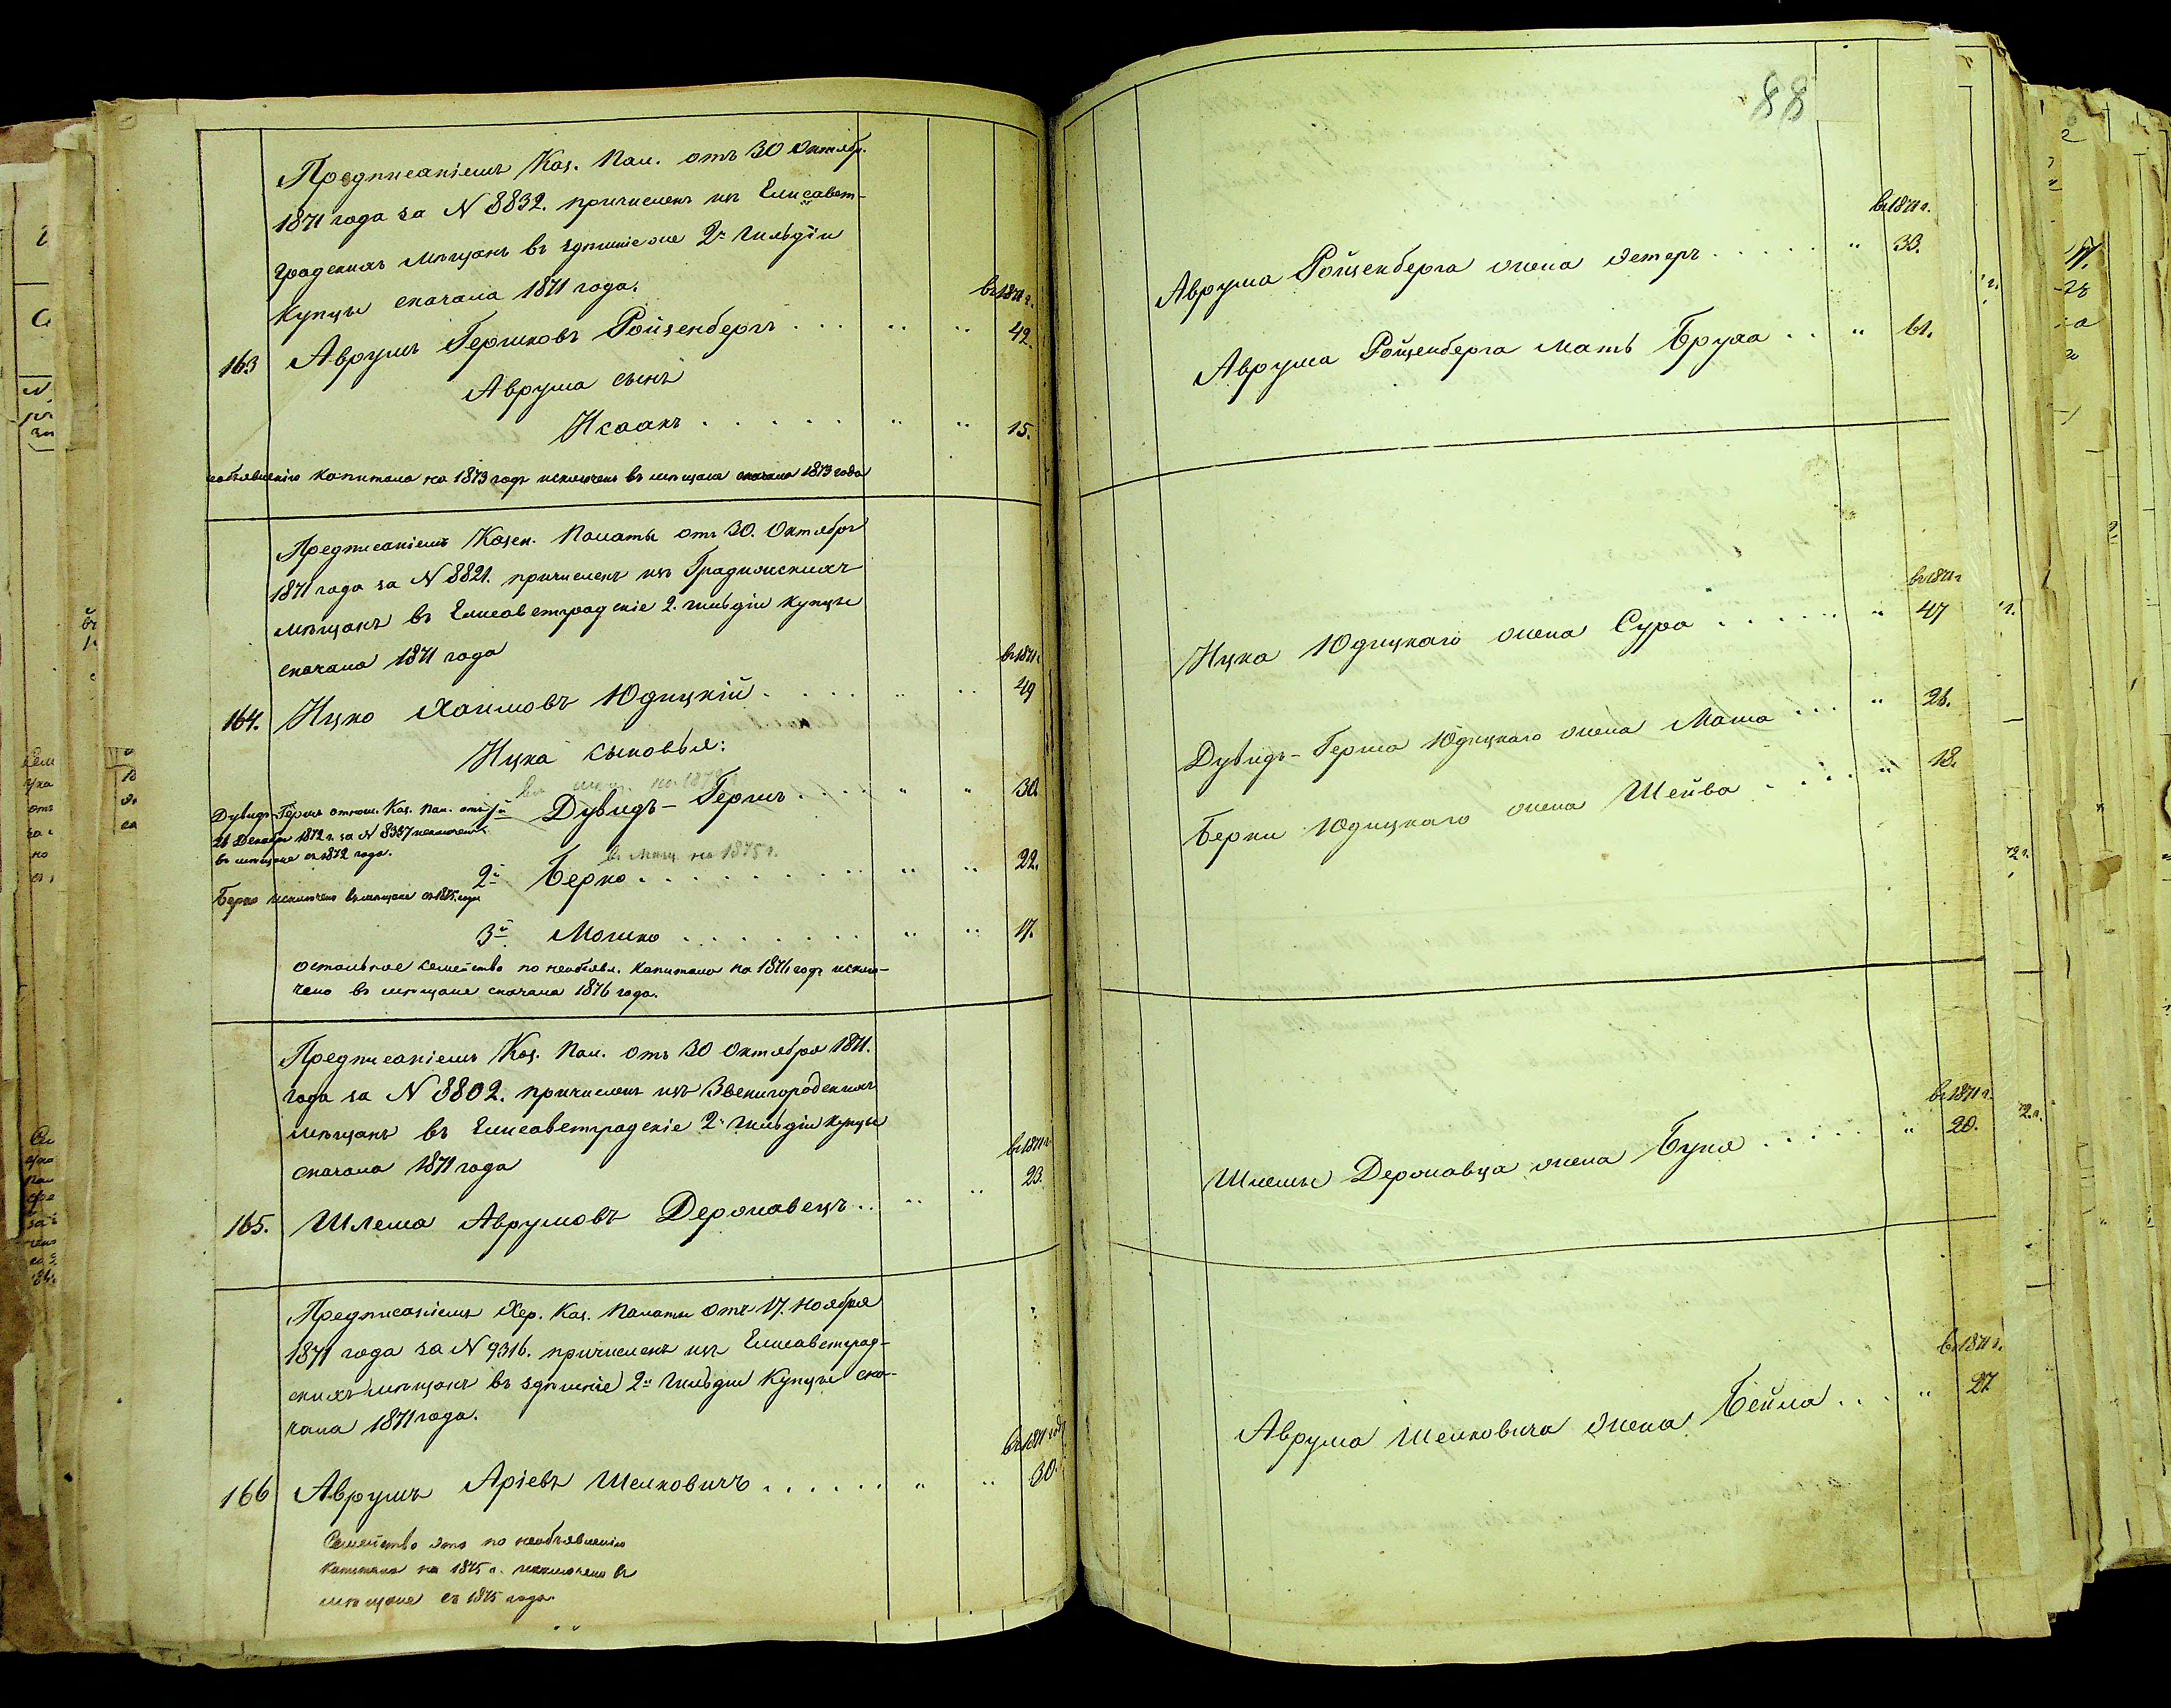 Предписаніемъ Каз. Пал. отъ 30 Октябр.
1871 года за N 8832. причисленъ изъ Елисавет-
градскихъ мѣщанъ въ здѣшніе 2й Гильдіи
Купцы сначала 1871 года.
въ 1871 г.
163 Аврумъ Гершковъ Ройзенбергъ . . . " " 42.
Аврума сынъ
Исаакъ . . . . . " " 15.
необъявленію капитала на 1873 годъ исключенъ въ мѣщане сначала 1873 года
Предписаніемъ Казен. Палаты отъ 30. Октября
1871 года за N 8821. причисленъ изъ Градижскихъ
мѣщанъ въ Елисаветградскіе 2. гильдіи купцы
сначала 1871 года
въ 1871 г.
164. Ицко Хаимовъ Юдицкій . . . . " " 49
Ицка сыновья:
Дувидъ-Гершъ отнош. Каз. Пал. отъ
21 Декабря 1872 г. за N 8357 исключенъ
въ мѣщане съ 1872 года.
1й Дувидъ-Гершъ . . . . " " 30.
въ мѣщ. на 1875 г.
2й Берко . . . . . . . . " " 22.
Берко исключенъ въ мѣщане съ 1875 года
3й Мошко . . . . . . . " " 17.
остальное семейство по необъявл. капитала на 1876 годъ исклю-
чено въ мѣщане сначала 1876 года.
Предписаніемъ Каз. Пал. отъ 30 Октября 1871.
года за N 8802. причисленъ изъ Звенигородскихъ
мѣщанъ въ Елисаветградскіе 2й гильдіи купцы
сначала 1871 года
въ 1871 г.
165. Шлема Аврумовъ Державецъ . . " " 23.
Предписаніемъ Хер. Каз. Палаты отъ 17. Ноября
1871 года за N 9316. причисленъ изъ Елисаветград-
скихъ мѣщанъ въ здѣшніе 2й Гильдіи Купцы сна-
чала 1871 года.
въ 1871 году
166 Аврумъ Аріевъ Шейковичъ . . . . . . " " 30.
Семейство это по необъявленію
капитала на 1875 г. исключено въ
мѣщане съ 1875 года.
88
въ 1871 г.
Аврума Ройзенберга жена Эстеръ . . . . . " 33.
Аврума Ройзенберга мать Бруха . . " 61.
въ 1871 г.
Ицка Юдицкаго жена Сура . . . . . . " 47
Дувидъ-Герша Юдицкаго жена Маша . . . " 26.
Берки Юдицкаго жена Шейва . . . . " 18.
въ 1871 г.
Шлемы Державца жена Буня . . . . . " 20.
въ 1871 г.
Аврума Шейковича жена Бейла . . . " 27.